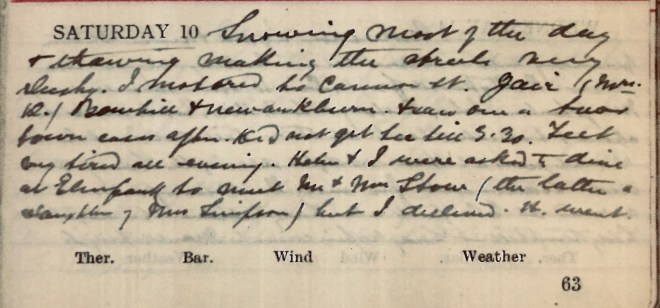 SATURDAY 10 Snowing most of the day
& thawing making the streets very
slushy. I motored to Cannon St. Fair (Mrs.
R.) Bowhill & Newarkburn. & saw one or two
town cases after. Did not get tea till 5.30. Felt
very tired all evening. Helen & I were asked to dine
at Elmpark to meet Mr & Mrs Stowe (the latter a
daughter of Mrs Simpson) but I declined. H. went.
Ther. Bar. Wind Weather
63